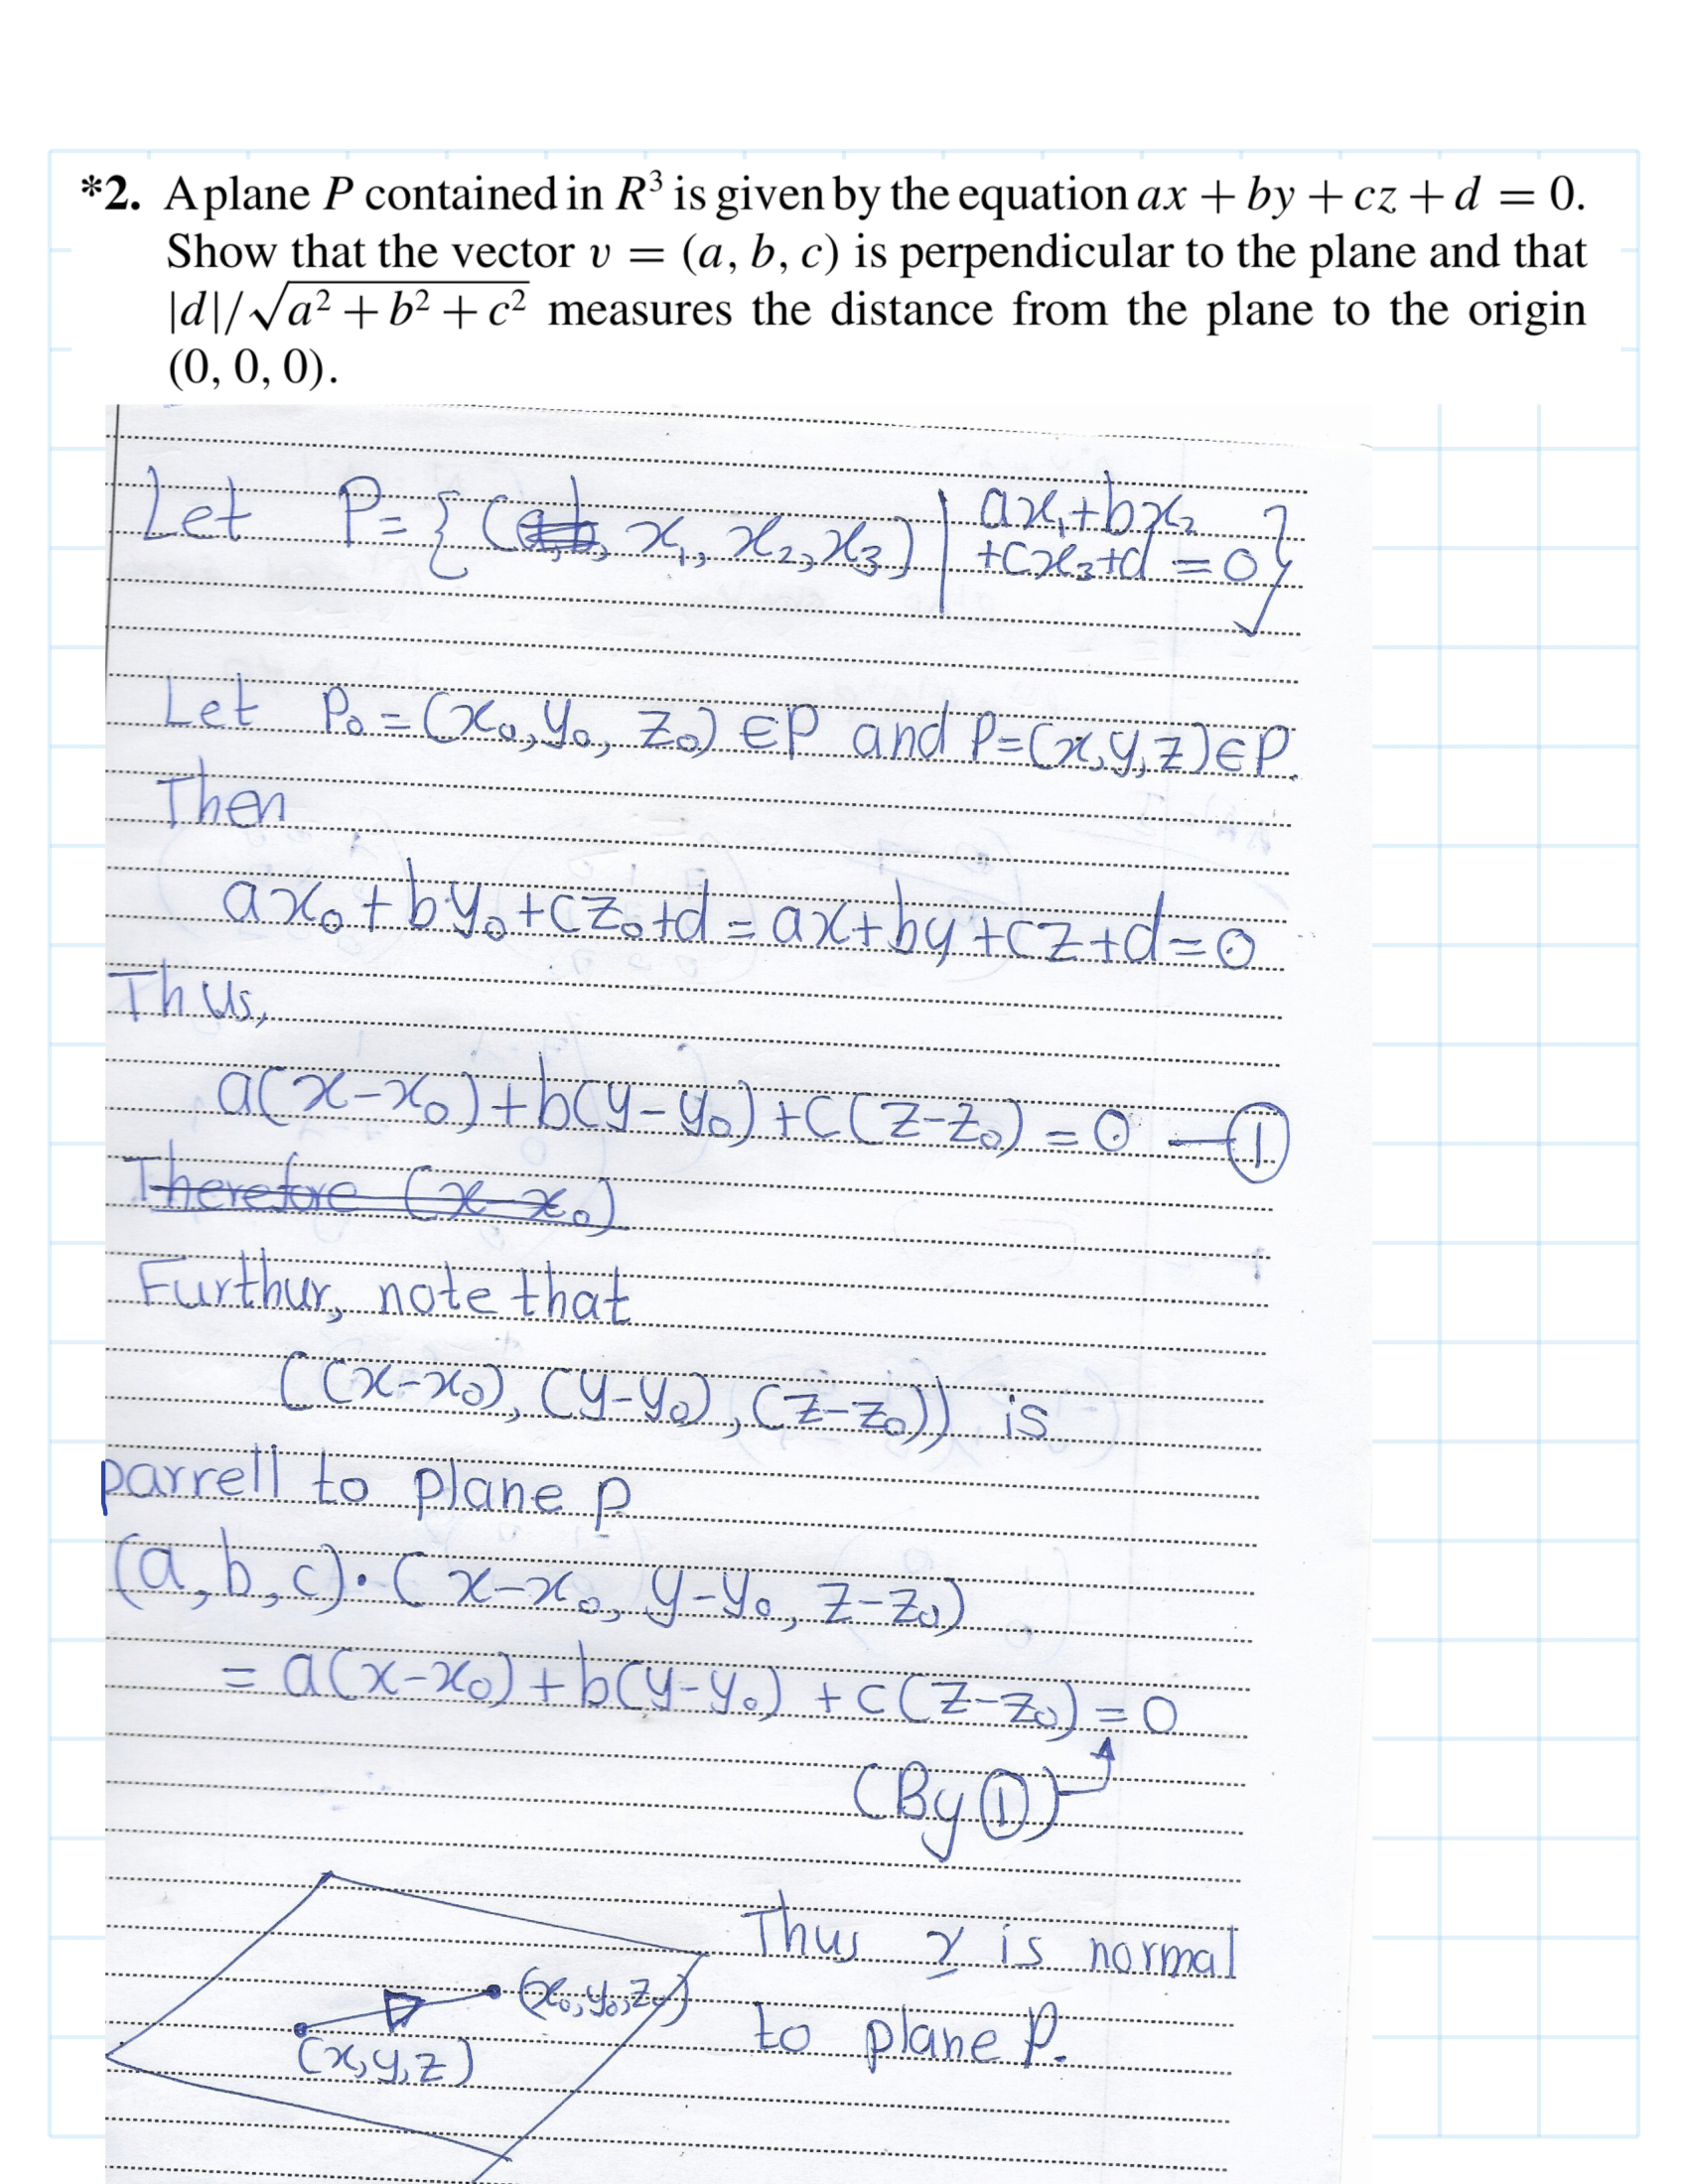 *2. A plane P contained in R³ is given by the equation ax + by + cz + d = 0.
Show that the vector v = (a, b, c) is perpendicular to the plane and that
|d|/√a² + b² + c² measures the distance from the plane to the origin
(0, 0, 0).
Let P = { (x₁, x₂, x₃) | ax₁+bx₂
+cx₃+d = 0 }
Let P₀ = (x₀, y₀, z₀) ∈ P and P = (x, y, z) ∈ P.
Then
ax₀ + by₀ + cz₀ + d = ax + by + cz + d = 0
Thus,
a(x-x₀) + b(y-y₀) + c(z-z₀) = 0 — ①
Therefore (x-x₀)
Furthur, note that
((x-x₀), (y-y₀), (z-z₀)) is
parrell to plane P
(a, b, c) · (x-x₀, y-y₀, z-z₀)
= a(x-x₀) + b(y-y₀) + c(z-z₀) = 0
(By ①)
Thus v is normal
(x₀, y₀, z₀)
to plane P.
(x, y, z)